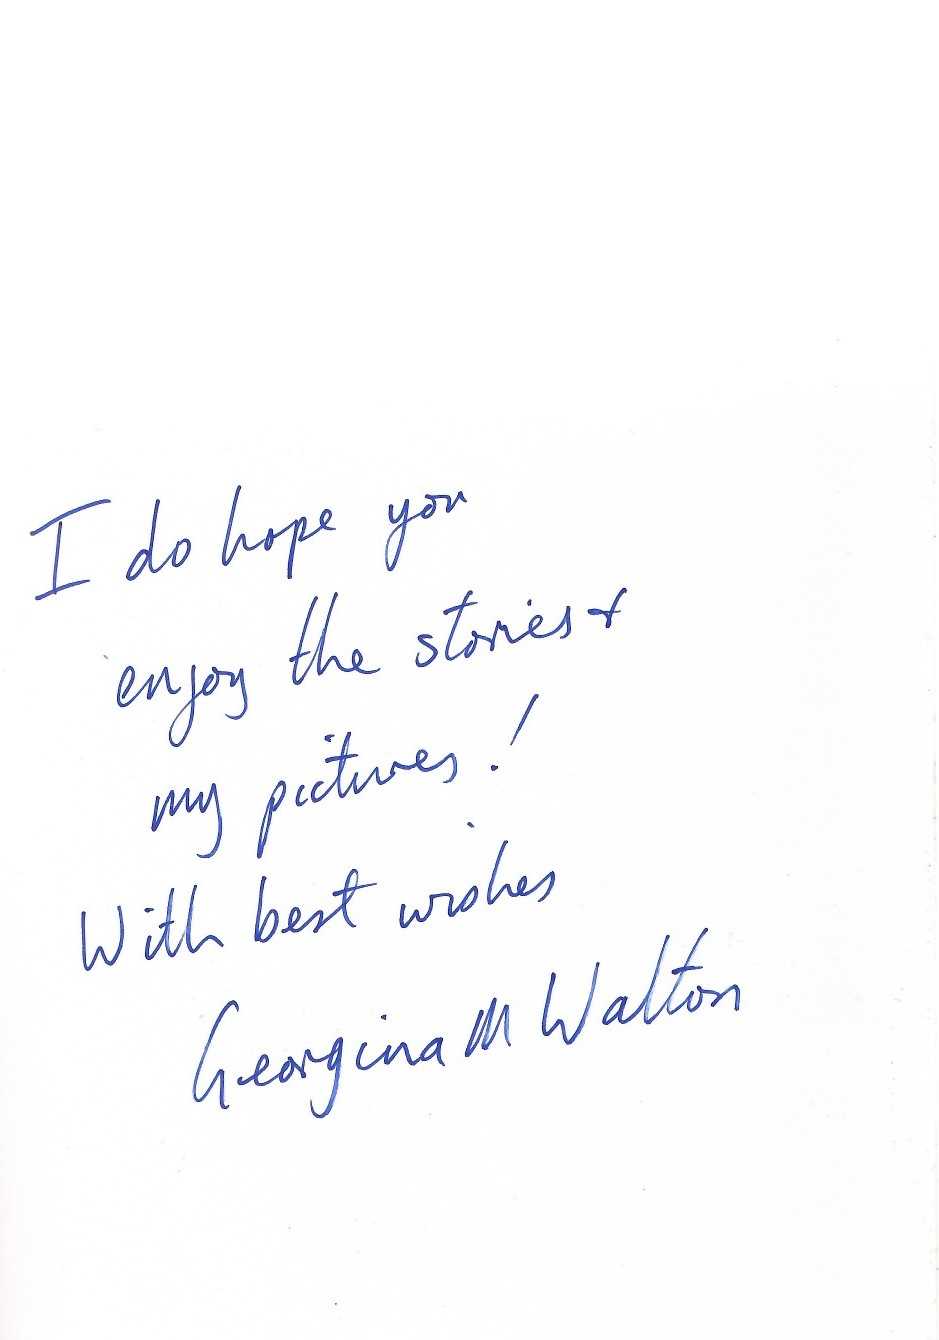 I do hope you
enjoy the stories &
my pictures!
With best wishes
Georgina M Walton